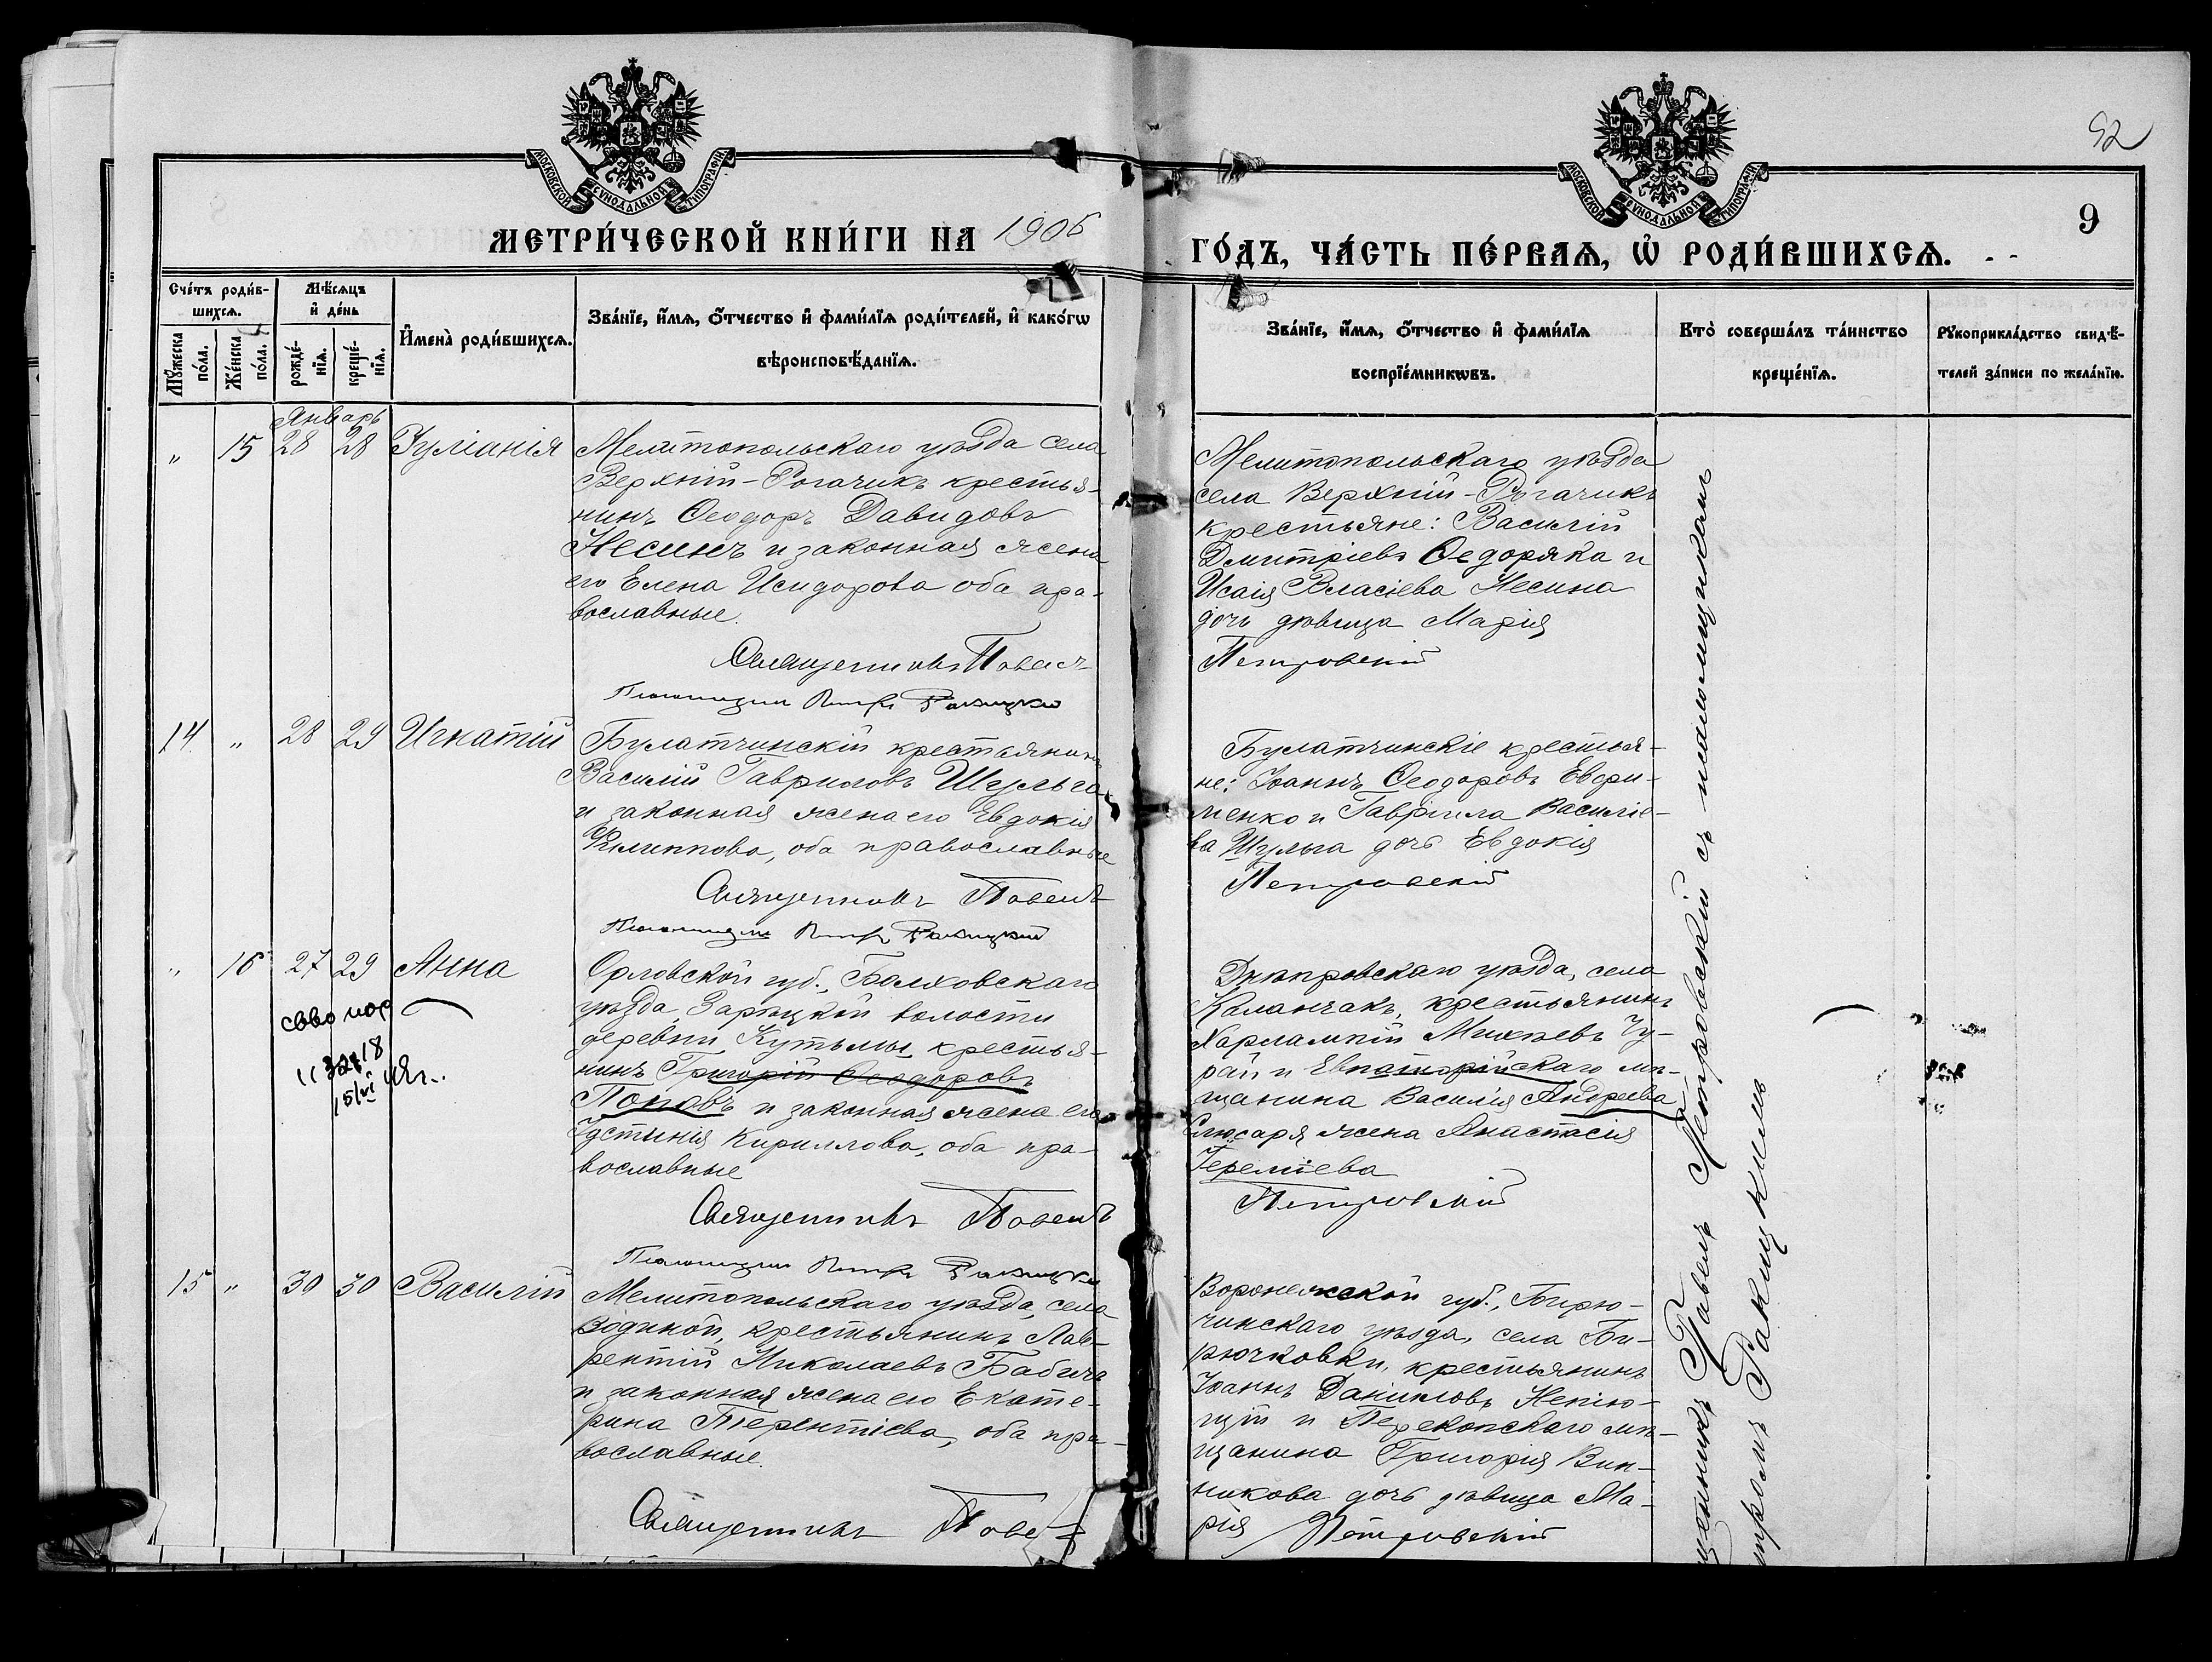 МОСКОВСКОЙ СѴНОДАЛЬНОЙ ТИПОГРАФІИ
МОСКОВСКОЙ СѴНОДАЛЬНОЙ ТИПОГРАФІИ
92
9
МЕТРИ́ЧЕСКОЙ КНИ́ГИ НА 1906
ГО́ДЪ, ЧА́СТЬ ПЕ́РВАѦ, Ѡ҆ РОДИ́ВШИХСѦ.
Сче́тъ роди́в-
шихсѧ.
Мꙋ́жеска по́ла.
Же́нска по́ла.
Мѣ́сѧцъ
и҆ де́нь
рожде́-
нїѧ.
креще́-
нїѧ.
И҆мена̀ роди́вшихсѧ.
Зва́нїе, и҆́мѧ, ѻ҆́тчество и҆ фами́лїѧ роди́телей, и҆ како́гѡ
вѣроисповѣ́данїѧ.
Зва́нїе, и҆́мѧ, ѻ҆́тчество и҆ фами́лїѧ
воспрїе́мникѡвъ.
Кто̀ соверша́лъ та́инство
креще́нїѧ.
Рꙋкоприкла́дство свидѣ́-
телей за́писи по жела́нїю.
Январь
" 15 28 28 Іуліанія
Мелитопольскаго уѣзда села
Верхній-Рогачикъ крестья-
нинъ Ѳеодоръ Давидовъ
Несинъ и законная жена
его Елена Исидорова оба пра-
вославные.
Священникъ Павелъ
Псаломщикъ Петръ Ракицкій
Мелитопольскаго уѣзда
села Верхній-Рогачикъ
крестьяне: Василій
Дмитріевъ Ѳедоряка и
Исаія Власіева Несина
дочь дѣвица Марія
Петровскій
14 " 28 29 Игнатій
Булатчинскій крестьянинъ
Василій Гавриловъ Шульга
и законная жена его Евдокія
Филиппова, оба православные
Священникъ Павелъ
Псаломщикъ Петръ Ракицкій
Булатчинскіе крестья-
не: Іоаннъ Ѳеодоровъ Евфи-
менко и Гавріила Василіе-
ва Шульга дочь Евдокія
Петровскій
" 16 27 29 Анна
15/VI
Орловской губ., Балховскаго
уѣзда, Зарѣцкой волости
деревни Кутьмы крестья-
нинъ Григорій Ѳеодоровъ
Поповъ и законная жена его
Іустинія Кириллова, оба пра-
вославные
Священникъ Павелъ
Псаломщикъ Петръ Ракицкій
Днѣпровскаго уѣзда, села
Каланчакъ, крестьянинъ
Харлампій Михѣевъ Чу-
рай и Евпаторійскаго мѣ-
щанина Василія Андреева
Слюсаря жена Анастасія
Іереміева
Петровскій
15 " 30 30 Василій
Мелитопольскаго уѣзда, села
Водяной, крестьянинъ Лав-
рентій Николаевъ Бабичъ
и законная жена его Екате-
рина Терентіева, оба пра-
вославные.
Священникъ Паве
Воронежской губ., Бирю-
чинскаго уѣзда, села Би-
рючковки, крестьянинъ
Іоаннъ Даниловъ Непію-
щій и Перекопскаго мѣ-
щанина Григорія Вин-
никова дочь дѣвица Ма-
рія Петровскій
щенникъ Павелъ Петровскій съ псаломщикомъ
тромъ Ракицкимъ